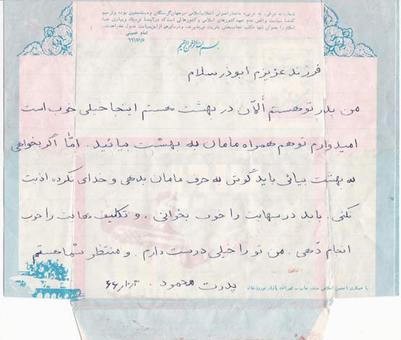 امام خمینی
بسم الله الرحمن الرحیم
فرزند عزیزم ابوذر سلام
من پدر تو هستم الآن در بهشت هستم اینجا خیلی خوب است
امیدوارم تو هم همراه مامان به بهشت بیائید. امّا اگر بخواهی
به بهشت بیائی باید گوش به حرف مامان بدهی و خدای نکرده اذیت
نکنی. باید درسهایت را خوب بخوانی. و تکلیف هایت را خوب
انجام دهی. من تو را خیلی دوست دارم. و منتظر شما هستم
پدرت محمود.